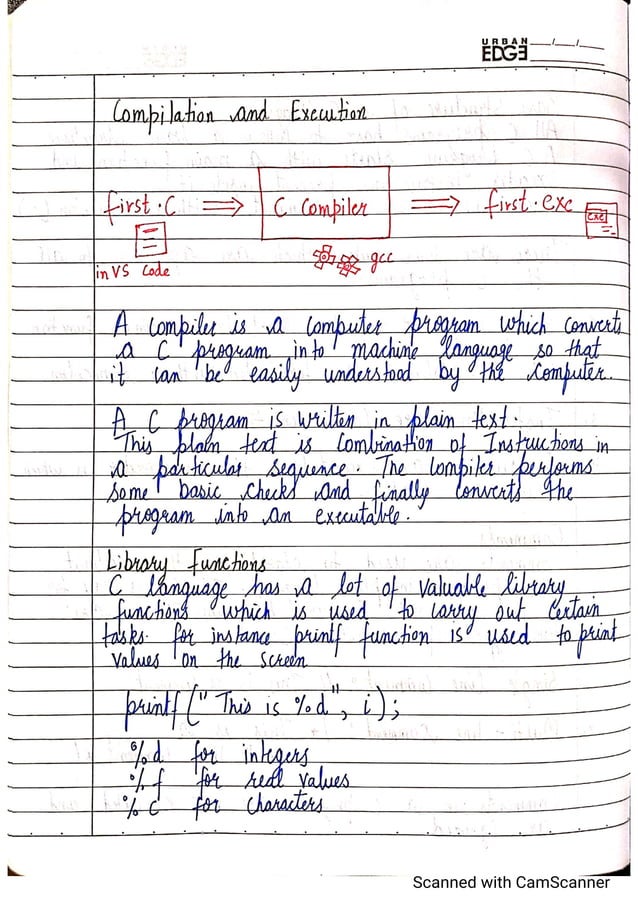 URBAN
EDGE
Compilation and Execution
first.C ⇒ C Compiler ⇒ first.exc
exe
in VS Code
gcc
A compiler is a computer program which converts
a C program into machine language so that
it can be easily understood by the computer.
A C program is written in plain text.
This plain text is Combination of Instructions in
a particular sequence. The compiler performs
some basic checks and finally converts the
program into an executable.
Library functions
C language has a lot of valuable library
functions which is used to carry out Certain
tasks. for instance printf function is used to print
values on the screen
printf (" This is %d", i);
%d for integers
%f for real values
%c for Characters
Scanned with CamScanner